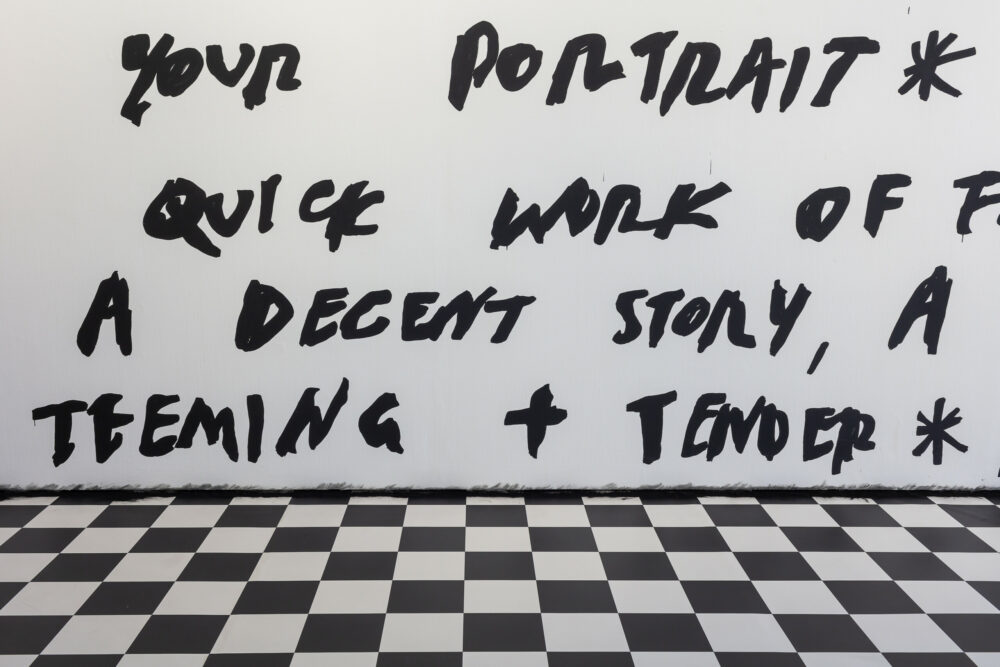 YOUR PORTRAIT *
QUICK WORK OF
A DECENT STORY, A
TEEMING + TENDER *